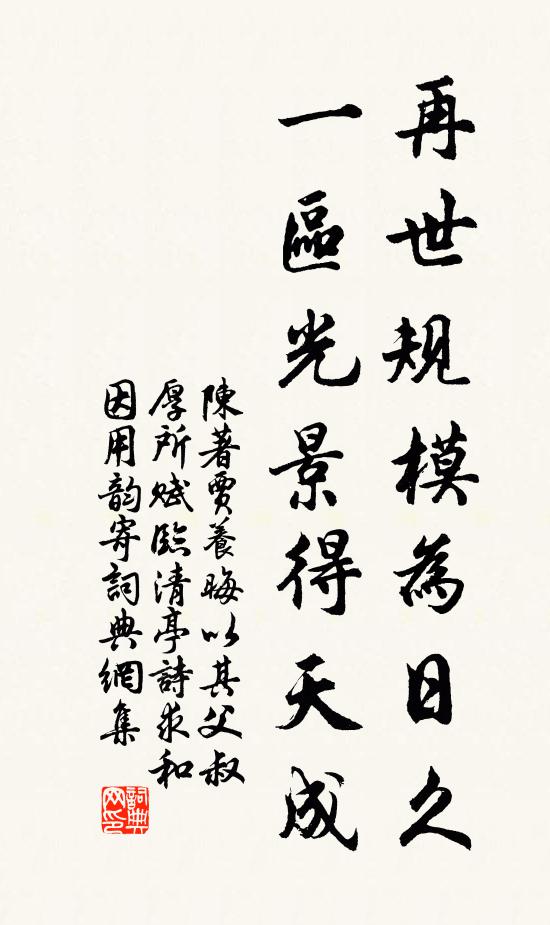 再世規模為日久
一區光景得天成
陳著賈養晦以其父叔
厚所賦臨清亭詩求和
因用韵寄詞典網集
詞典
网印